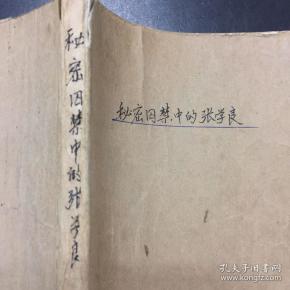 秘密囚禁中的张学良
秘密囚禁中的张学良
孔夫子旧书网